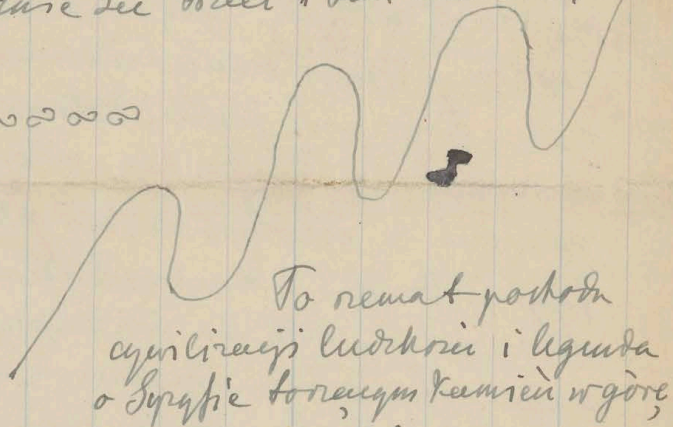 To schemat pochodu
cywilizacji ludzkości i legenda
o Syzyfie toczącym kamień w górę